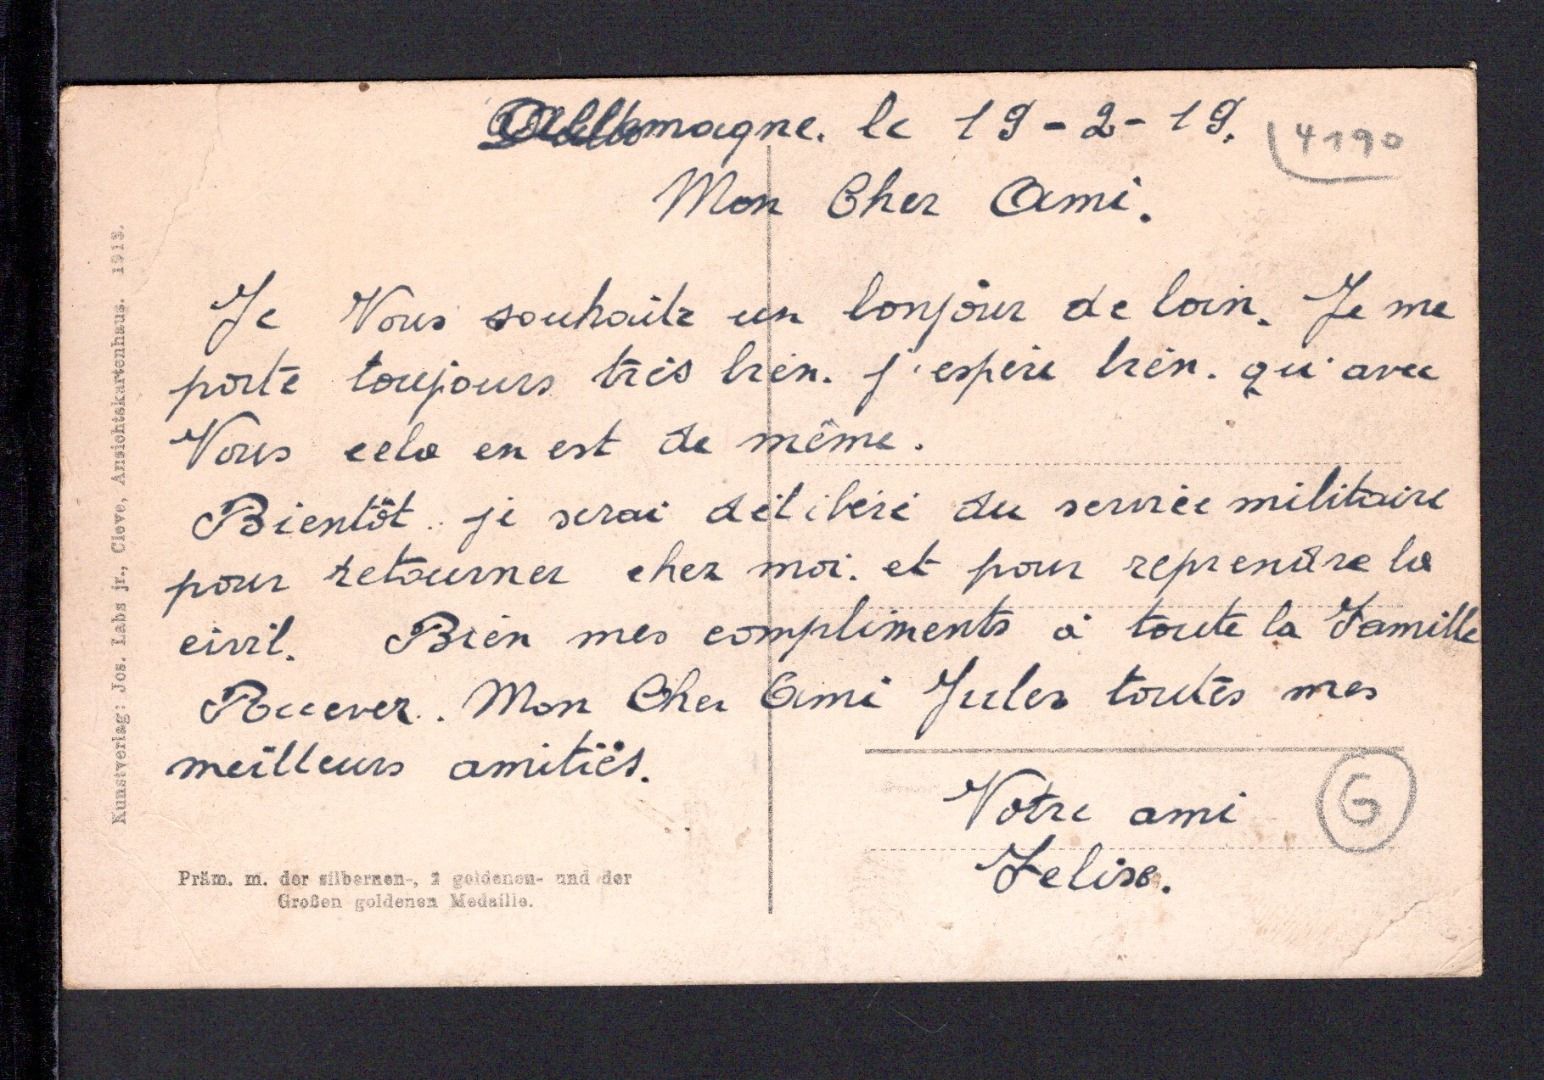 Allemagne. le 19-2-19.
4190
Mon Cher Ami.
Je Vous souhaite un bonjour de loin. Je me
porte toujours très bien. j'espère bien. qu'avec
Vous cela en est de même.
Bientôt. je serai délibéré du service militaire
pour retourner chez moi. et pour reprendre la
civil. Bien mes compliments à toute la Famille
Mon Cher Ami Jules toutes mes
meilleurs amitiés.
Votre ami
G
Kunstverlag: Jos. Labs jr., Cleve, Ansichtskartenhaus. 1913.
Präm. m. der silbernen-, 2 goldenen- und der
Großen goldenen Medaille.